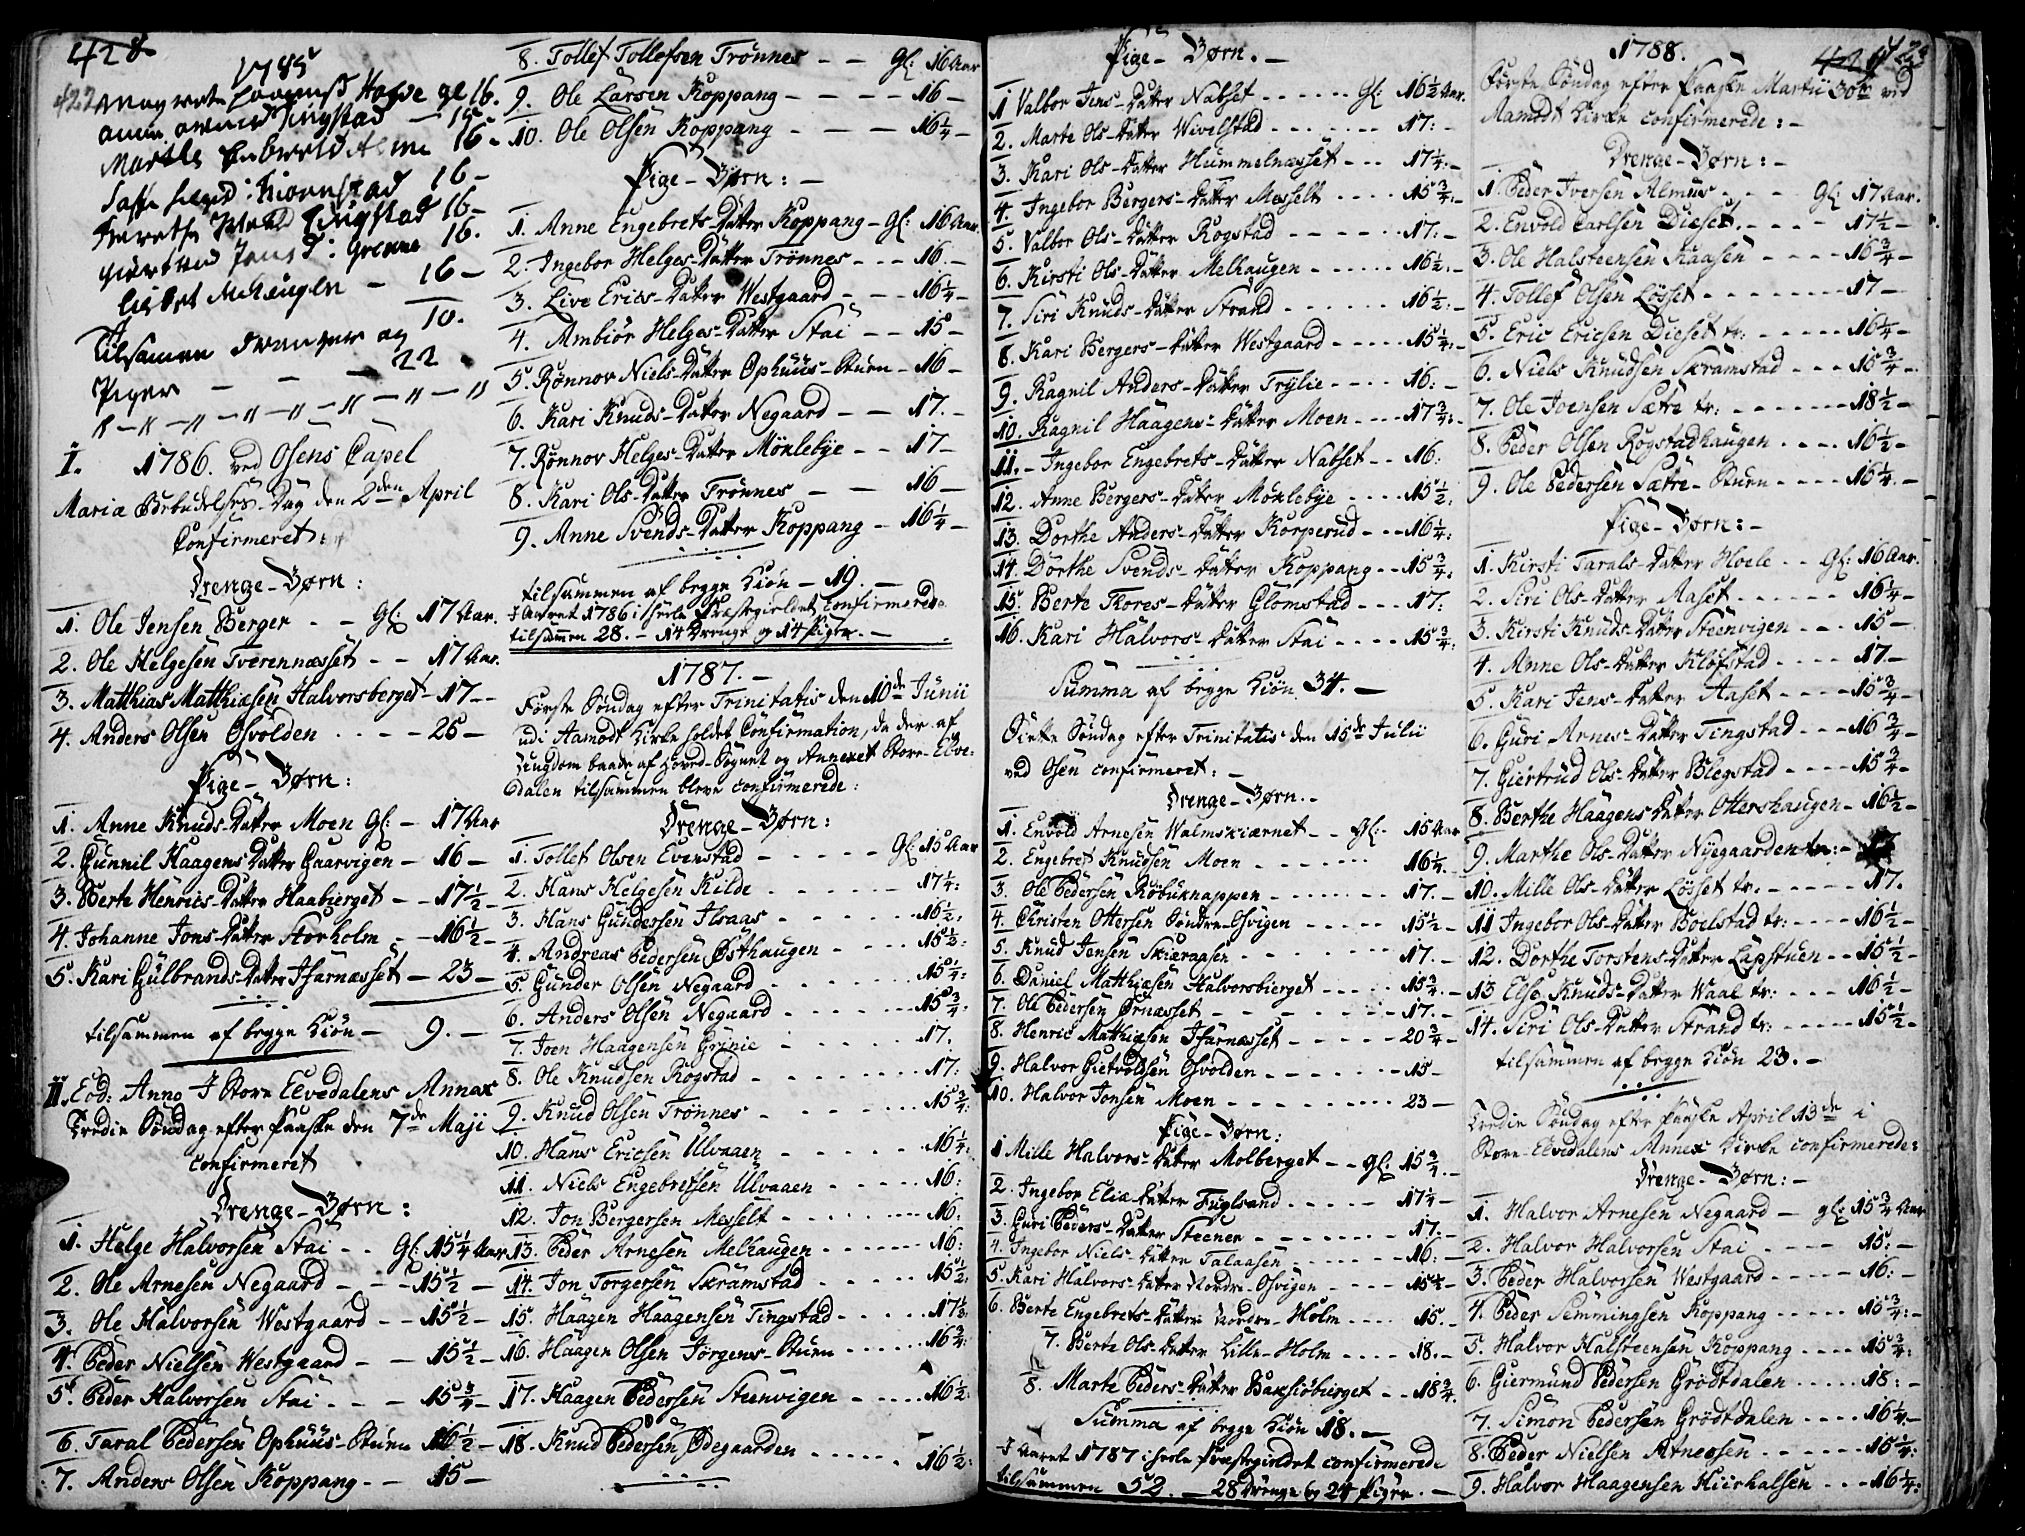 428
422
1785
Hagde gl 16.
Tingstad — 15
Marthe Alme 16 -
Kiernstad 16 -
Tingstad 16 -
Jens D: Grenne 16.
Lisbet Melhaugen — 16 —
Tilsamen Drenger og 10.
Piger — — — 22
I. 1786. ved Osens Capel
Mariæ Bebudelses-Dag den 2den April
Confirmeret:
Drenge-Børn:
1. Ole Jensen Berger - - Gl: 17 Aar.
2. Ole Helgesen Tverennæsset - - 17 Aar.
3. Matthias Mathiasen Halvorsberget - 17 -
4. Anders Olsen Osvolden - - - - 25 —
Pige-Børn:
1. Anne Knuds-Datter Moen Gl: - 17 Aar
2. Gunnil Haagens Datter Gaarvigen - 16 —
3. Berte Henrics-Datter Haaberget - - 17½ -
4. Johanne Jons-Datter Storholm - - 16½ -
5. Kari Gulbrands-Datter Ifarnæsset - 23 —
tilsammen af begge Kiøn — 9. —
II. Eod: Anno I Store Elvedalens Annex
Tredie Søndag efter Paaske den 7de Maji
confirmeret
Drenge-Børn:
1. Helge Halvorsen Stai - - Gl: 15¼ Aar
2. Ole Arnesen Negaard - - - 15½ —
3. Ole Halvorsen Westgaard - - 15½ —
4. Peder Nielsen Westgaard - - 15½ -
5. Peder Halvorsen Stai - - - 15¾ -
6. Taral Pedersen Ophuus-Stuen 16½ -
7. Anders Olsen Koppang - - 15 —
8. Tollef Tollefsen Trønnes - - Gl: 16 Aar
9. Ole Larsen Koppang - - - - 16 —
10. Ole Olsen Koppang - - - - 16¼ —
Pige-Børn: -
1. Anne Engebrets-Datter Koppang - Gl: 16 Aar.
2. Ingebor Helges-Datter Trønnes - - - 16. —
3. Live Erics-Datter Westgaard - - - 16¼ -
4. Ambiør Helges-Datter Stai - - 15 —
5. Rønnov Niels-Datter Ophuus-Stuen - 16 —
6. Kari Knuds-Datter Negaard - - 17. —
7. Rønnov Helges-Datter Møklebye - - 17 —
8. Kari Ols-Datter Trønnes - - 16 —
9. Anne Svends-Datter Koppang - 16¼ —
tilsammen af begge Kiøn — 19. —
I Aaret 1786 i hele Præstegieldet confirmerede
tilsamen 28. — 14 Drenge og 14 Piger. —
1787. —
Første Søndag efter Trinitatis den 10de Junii
udi Aamodt Kirke holdet Confirmation, da der af
Ungdom baade af Hoved-Sognet og Annexet Store-Elve-
dalen tilsammen bleve confirmerede:
Drenge-Børn:
1. Tollef Olsen Evenstad - - - - - Gl: 15 Aar
2. Hans Helgesen Kilde - - - - - 17¼:
3. Hans Gundersen Ilsaas - - - - - 16½:
4. Andreas Pedersen Østhaugen - - - - 15½:
5. Gunder Olsen Negaard - - - - - 15¼:
6. Anders Olsen Negaard - - - - - 15¾:
7. Joen Haagensen Grinie - - - - - 17.
8. Ole Knudsen Rogstad - - - - - 17:
9. Knud Olsen Trønnes - - - - - 15¾:
10. Hans Ericsen Ulvaaen - - - - - 16¼:
11. Niels Engebretsen Ulvaaen - - - - 16:
12. Jon Bergersen Messelt - - - - - 16:
13. Peder Arnesen Melhaugen - - - - - 16:
14. Jon Torgersen Skramstad - - - - - 15½:
15. Haagen Haagensen Tingstad - - - - 17½
16. Haagen Olsen Jørgens-Stuen - - - - 16¾:
17. Haagen Pedersen Steenvigen - - - - 16½:
18. Knud Pedersen Ødegaarden - - - - - 16½:
Pige-Børn. -
1 Valbor Jens-Datter Nabset - - - - - Gl: 16½ Aar.
2. Marte Ols-Datter Wivelstad - - - - - 17: -
3. Kari Ols-Datter Hummelnæsset - - - 17¼: -
4. Ingebor Bergers-Datter Messelt - - - - 15¾: -
5. Valbor Ols-Datter Rogstad - - - - - 17: -
6. Kirsti Ols-Datter Melhaugen - - - - 16½: -
7. Siri Knuds-Datter Strand - - - - - 16½: -
8. Kari Bergers-Datter Westgaard - - - - 15¼: -
9. Ragnil Anders-Datter Trylie - - - - 16: -
10. Ragnil Haagens-Datter Moen - - - 17¾: -
11. - Ingebor Engebrets-Datter Nabset - - 16:
12. Anne Bergers-Datter Møklebye - - - - 15½:
13. Dorthe Anders-Datter Korperud - - - 16¼:
14. Dorthe Svends-Datter Koppang - - 15¾:
15. Berte Tores-Datter Glomstad - - - 17:
16. Kari Halvors-Datter Stai - - - - 15¾:
Summa af begge Kiøn 34. —
Siette Søndag efter Trinitatis den 15de Julii
ved Osen confirmeret: -
Drenge-Børn. -
1. Envold Arnesen Valmskiærnet - - gl: - 15 Aar
2. Engebret Knudsen Moen - - - - - 16¼ -
3. Ole Pedersen Røbuknappen - - - - - 17. -
4. Christen Ottersen Søndre-Osvigen - - - - 15½ -
5. Knud Jensen Skiæraasen - - - - - 17. -
6. Daniel Matthiasen Halvorsbierget - - - - 15¾ -
7. Ole Pedersen Ørnæsset - - - - - 17. -
8. Henric Mathiasen Ifarnæsset - - - - 20¾ -
9. Halvor Gietvoldsen Osvolden - - - - - 15 -
10. Halvor Jonsen Moen - - - - - 23 —
Pige-Børn:
1 Mille Halvors-Datter Molberget - - gl: 15¾ -
2. Ingebor Eliæ-Datter Fuglsand - - - - 17¼ -
3. Guri Peders-Datter Steenen - - - - - 17. -
4. Ingebor Niels-Datter Talaasen - - - - 16. -
5. Kari Halvors-Datter Nordre-Osvigen - - - 15½ -
6. Berte Engebrets-Datter Nordre-Holm - - - - 15. -
7. Berte Ols-Datter Lille-Holm - - - - 18. -
8. Marte Peders-Datter Baksiøbierget - - 18¾.
Summa af begge Kiøn 18. —
I Aaret 1787 i hele Præstegieldet confirmerede
tilsammen 52. — 28 Drenge og 24 Piger. —
1788.
423
Første Søndag efter Paaske Martii 30te ved
Aamodt Kirke confirmerede: -
Drenge-Børn: -
1. Peder Iversen Almus - - - Gl: 17 Aar.
2. Envold Carlsen Dieset. - - - - 17½ -
3. Ole Halsteensen Kaasen - - - - 16¾ -
4. Tollef Olsen Løsset - - - - - 17 -
5. Eric Ericsen Dieset tr: - - - - 16¼ -
6. Niels Knudsen Skramstad - - - 15¾ -
7. Ole Joensen Sætre tr: - - - - - 18½ -
8. Peder Olsen Rogstadhaugen - - - - 16½ -
9. Ole Pedersen Sætre-Stuen - - - - 16¼. -
Pige-Børn: -
1. Kirsti Tarals-Datter Hoele - - Gl: 16 Aar.
2. Siri Ols-Datter Aaset - - - - - 16¼ -
3. Kirsti Knuds-Datter Steenvigen - - - 15 -
4. Anne Ols-Datter Kløfstad - - - - 17 -
5. Kari Jens-Datter Aaset - - - - 15¾ -
6. Guri Arnes-Datter Tingstad - - - 16¾ -
7. Giertrud Ols-Datter Blegstad - - - - 15¾ -
8. Berthe Haagens-Datter Ottershaugen - 16½ -
9. Marthe Ols-Datter Nyegaarden tr: -
10. Mille Ols-Datter Løsset tr: - - - - 17.
11 Ingebor Ols-Datter Boelstad tr: - - - 16½ -
12. Dorthe Torstens-Datter Lapstuen - - 15½ -
13 Else Knuds-Datter Waal tr: - - - 16½ -
14. Siri Ols-Datter Strand tr: - - - - 15½ -
tilsammen af begge Kiøn 23. —
Tredie Søndag efter Paaske April 13de i
Store-Elvedalens Annex Kirke confirmerede:
Drenge-Børn: -
1. Halvor Arnesen Negaard - gl: 15¾ Aar
2. Halvor Halvorsen Stai - - - - 15: -
3. Peder Halvorsen Westgaard - - - - 16: -
4. Peder Semmingsen Koppang - - - - 15¾: -
5. Halvor Halsteensen Koppang - - - - 15¾:
6. Giermund Pedersen Grødtdalen - - - - 18: -
7. Simon Pedersen Grødtdalen - - - - 16¼ -
8. Peder Nielsen Atneosen - - - - - 15¼:
9. Halvor Haagensen Kiirhalsen - - - 16¼: